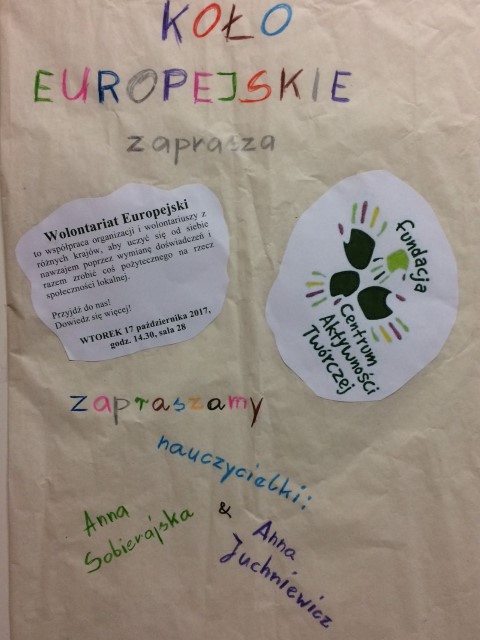 KOŁO
EUROPEJSKIE
zaprasza
Wolontariat Europejski
to współpraca organizacji i wolontariuszy z
różnych krajów, aby uczyć się od siebie
nawzajem poprzez wymianę doświadczeń i
razem zrobić coś pożytecznego na rzecz
społeczności lokalnej.
Przyjdź do nas!
Dowiedz się więcej!
WTOREK 17 października 2017,
godz. 14.30, sala 28
fundacja
Centrum
Aktywności
Twórczej
zapraszamy
nauczycielki:
Anna
Sobierajska
&
Anna
Juchniewicz